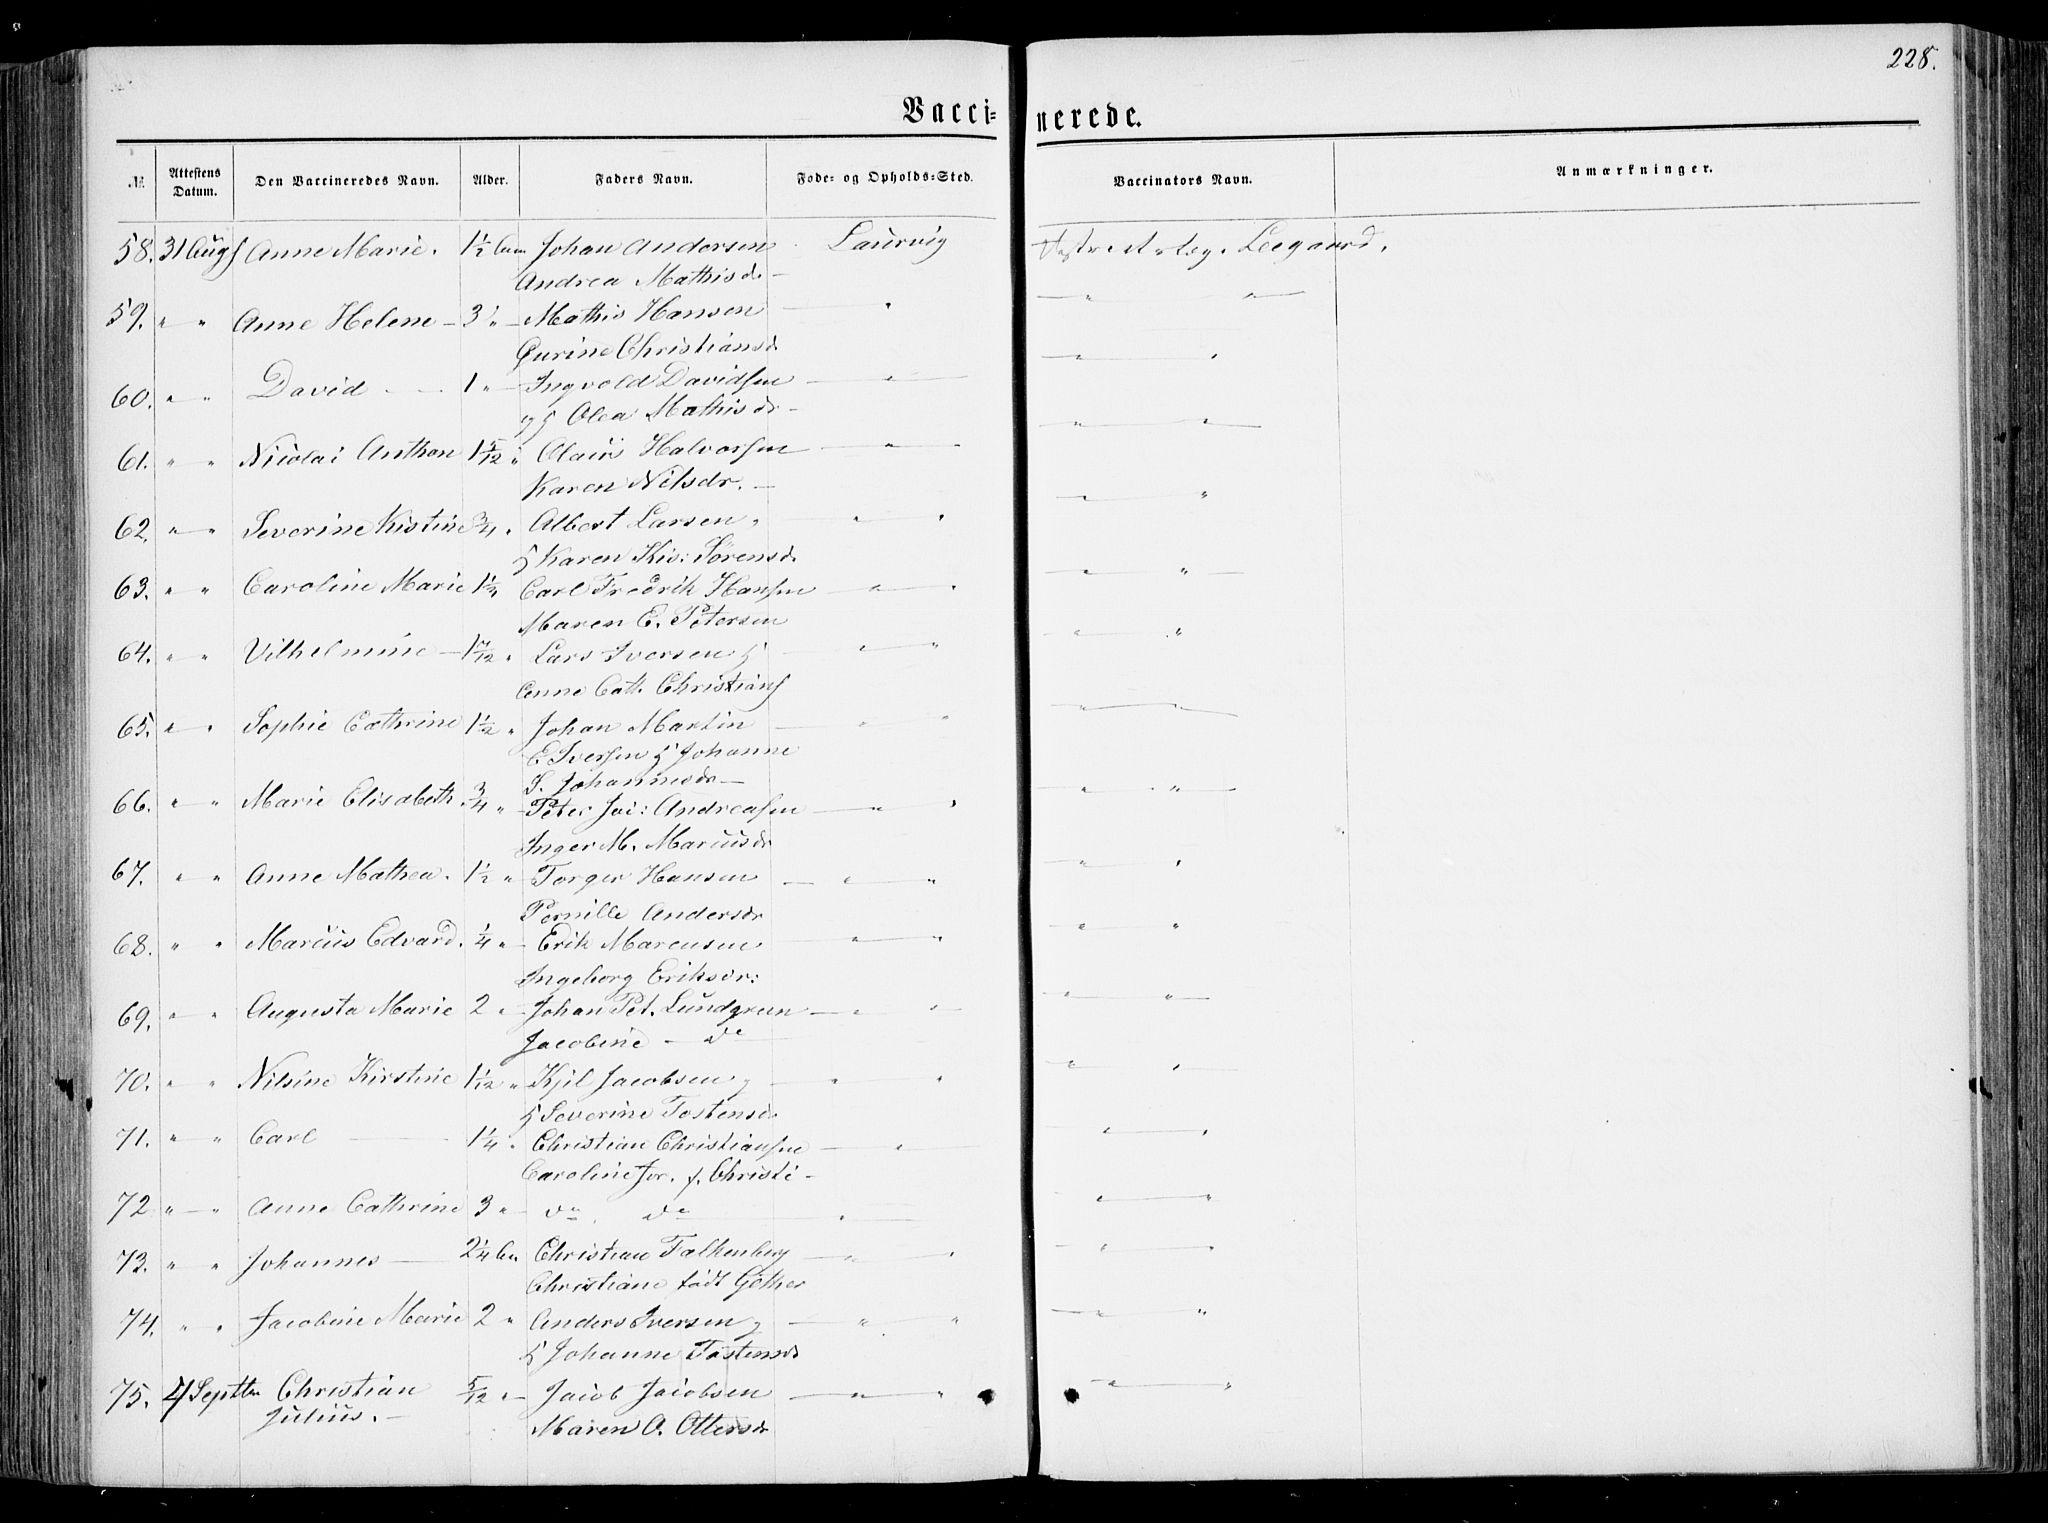 228.
Vacci= nerede.
№ Attestens Datum. Den Vaccineredes Navn. Alder. Faders Navn. Føde- og Opholds=Sted. Vaccinators Navn. Anmærkninger.
58. 31 Aug Anne Marie. 1½ Johan Andersen Laurvig Leegaard.
Andrea Mathisd. —
59. " " Anne Helene — 3 " — Mathis Hansen — "
Gurine Christiansd.
60. " " David — 1 " — Ingvold Davidsen — " —
Olea Mathisdr —
61. " " Nicolai Anthon 1 5/12 " Olaus Halvorsen — " —
Karen Nilsdr. —
62. " — " Severine Kistine 3/4 " Albert Larsen " — " — "
Karen Kis: Sörensd.
63. " " Caroline Marie 1½ Carl Fredrik Hansen — " — "
Maren E. Petersen
64. " " Vilhelmine — 1 7/12 " Lars Iversen — " — "
Anne Cath. Christians
65. " " Sophie Cathrine 1½ " Johan Martin — " — "
E Iversen Johanne
S. Johannesdr —
66. " " Marie Elisabeth. 3/4 " — Peter Joi: Andreasen — " — "
Inger M. Marcusdr
67. " " Anne Mathea. 1½ " — Torger Hansen — " — "
Pernille Andersdr
68. " " Marcus Edvard. 1/4 " — Erik Marensen — " — "
Ingeborg Eriksdr:
69. " " Augusta Marie 2 " — Johan Pet. Lundgreen — " — " —
Jacobine — do
70. " " Nilsine Kirstine 1 1/12 " Kjil Jacobsen — " — "
Severine Tostensd.
71. " — " Carl — 1¼ " Christian Christiansen — " —
Caroline Jor. f. Christi —
72 " — " Anne Cathrine 3 " — do do — " —
73. " " Johannes — 2¼ Christian Falkenberg — " — "
Christiane född Göther
74. " " Jacobine Marie 2 " Anders Iversen — " — "
Johanne Tostensdr
75. 4 Septbr Christian 5/12 " — Jacob Jacobsen — " — "
Julius. — Maren O. Ottersdr